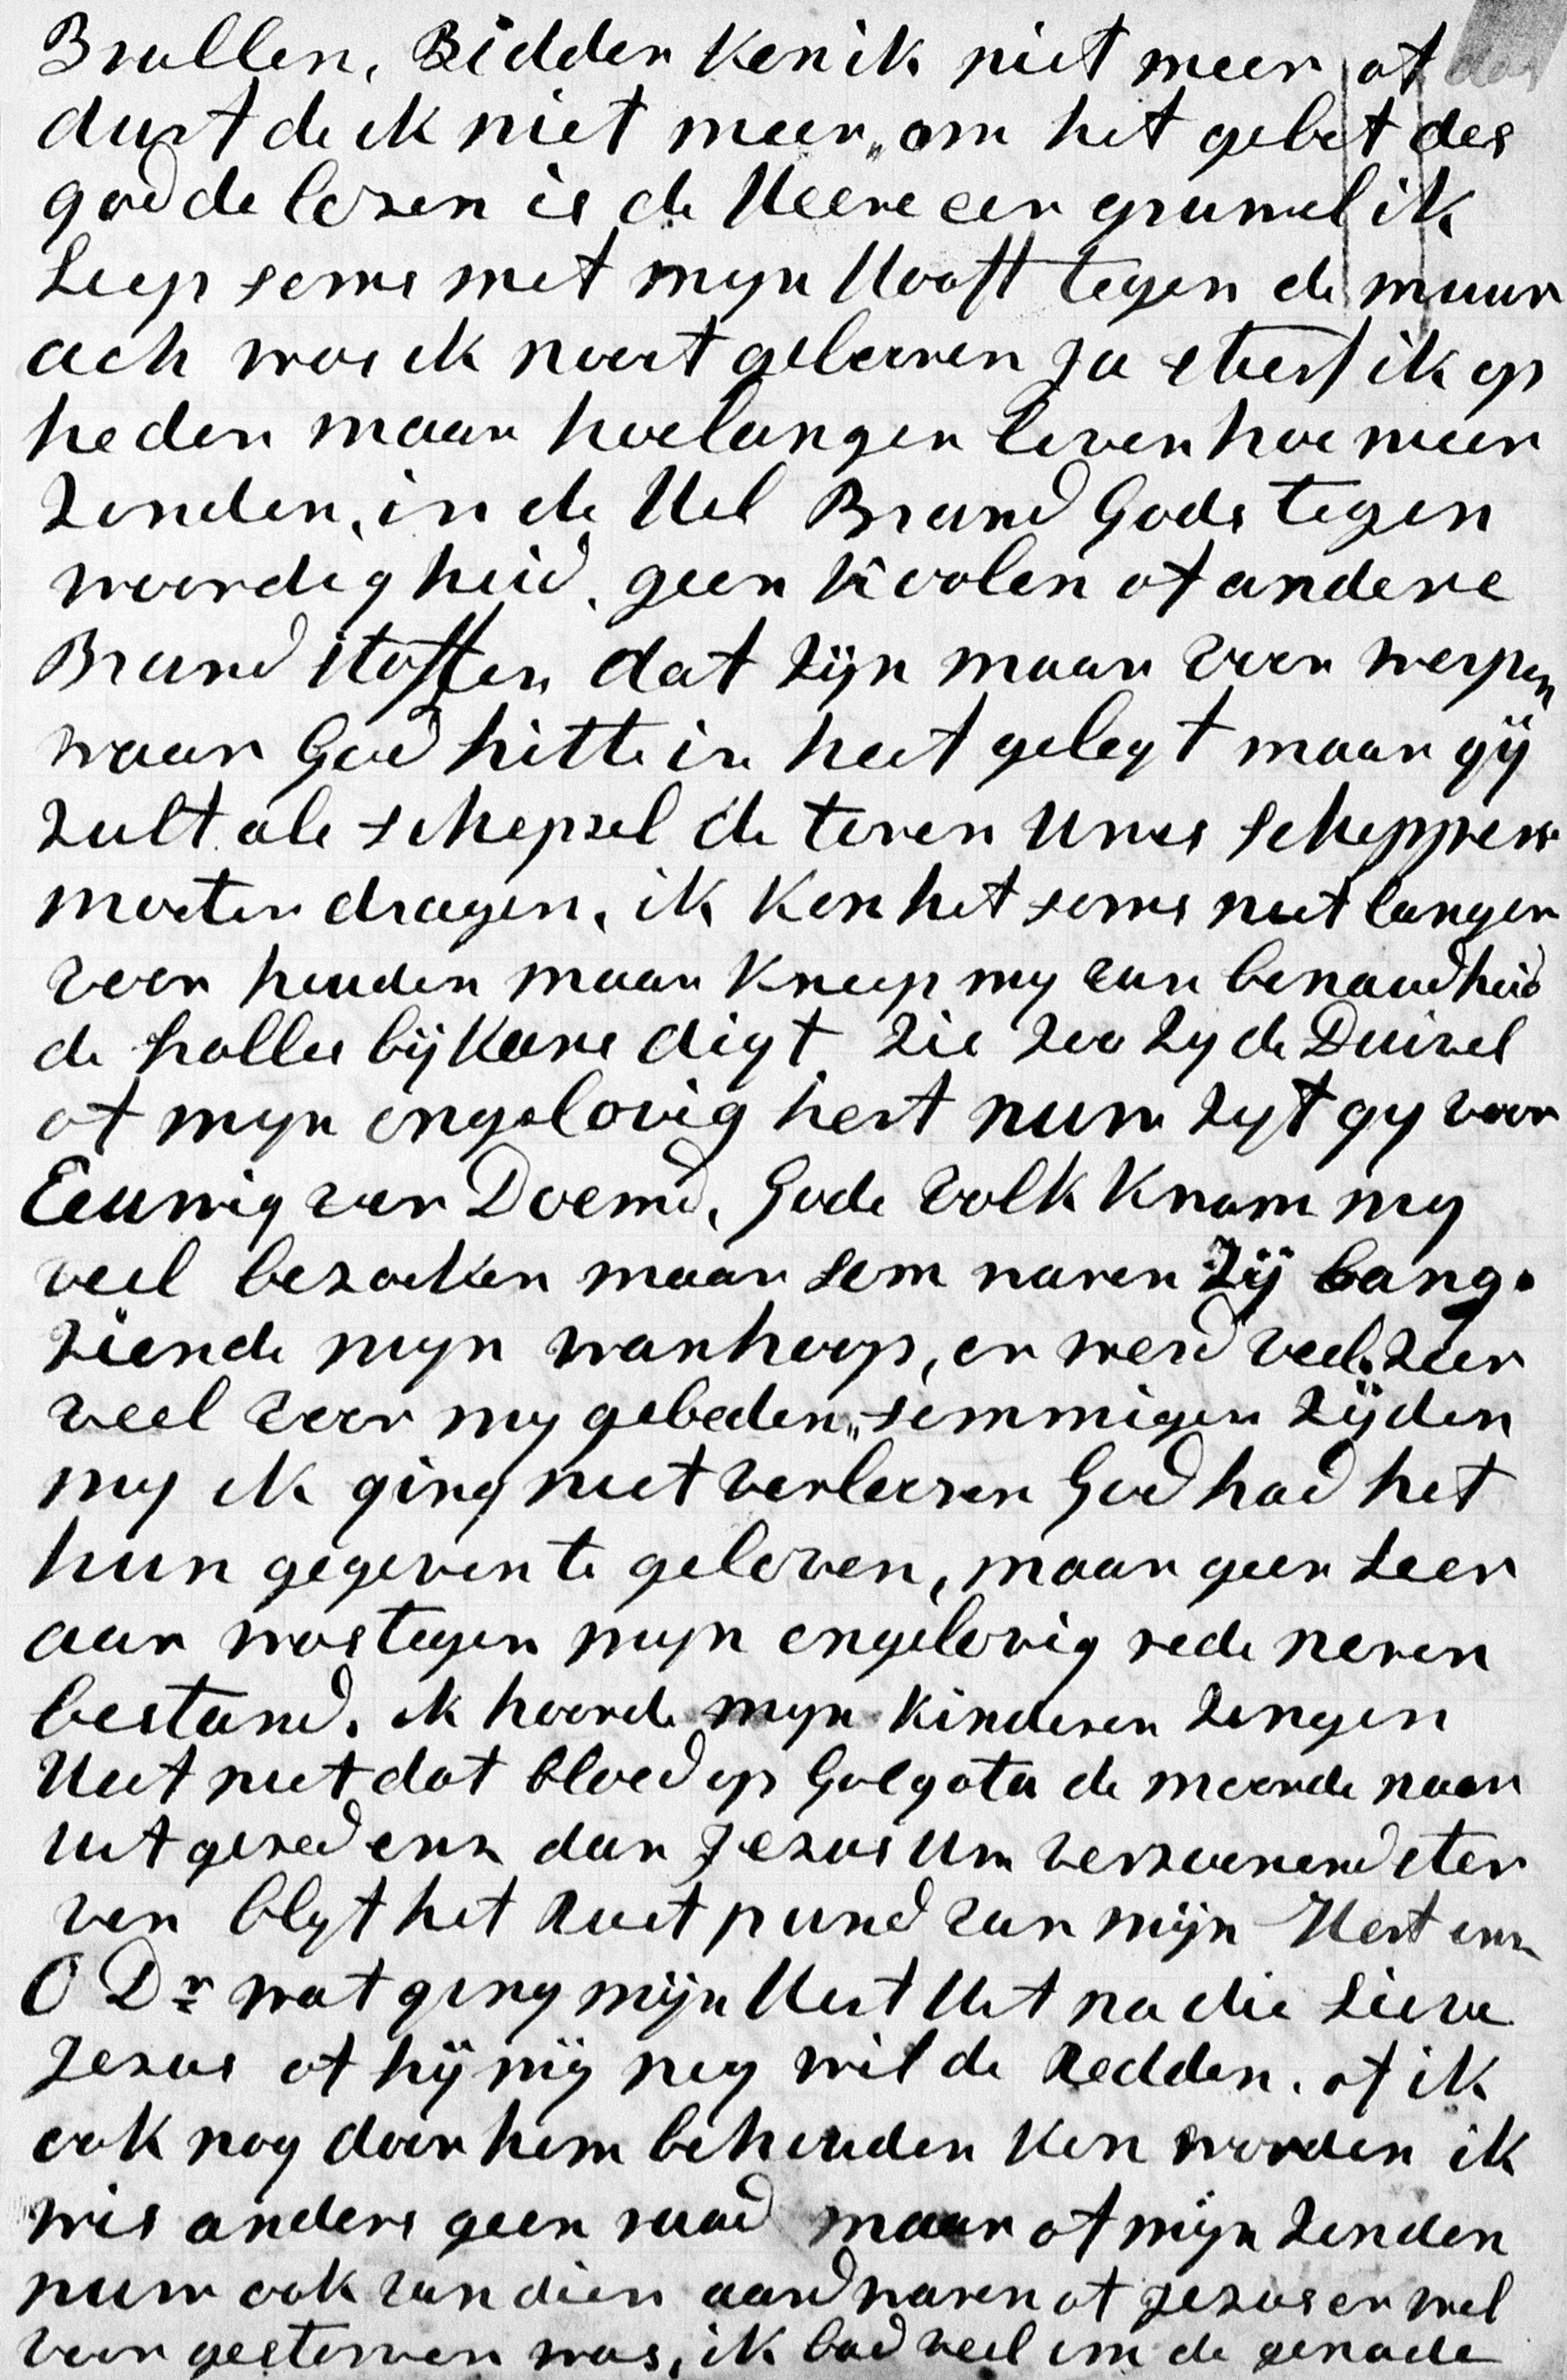 Brullen, Bidden kon ik niet meer, of
durf de ik niet meer„ om het gebet des
godde lozen is de Heere een gruwel ik
Liep soms met myn Hooft tegen de muur
ach was ik nooit geboren zo stierf ik op
heden maar hoe langer leven hoe meer
Zonden, in de Hel Brand Gods tegen
woordig heid, geen Koolen of andere
Brand stoffen dat zijn maar voor werpen
waar God hitte in heet gelegt maar gij
zult als schepsel de toren Uwes scheppers
moeten dragen, ik kon het soms niet langer
voor houden maar kneep my van benaudheid
de hals bijkans digt, Zie zoo zy de Duivel
of myn ongelovig hert nuw zyt gy voor
Eeuwig ver Doemd, Gods volk kwam my
veel bezoeken maar som waren zij bang.
ziende myn wanhoop, er werd veel, zeer
veel voor my gebeden„ sommigen zijden
my ik ging niet verloren God had het
hun gegeven te geloven, maar geen Leer
aar was tegen myn ongelovig rede neren
bestand. ik hoorde myn kinderen zingen
Heet niet dat bloed op Golgota de moorde naar
uit gered enz dan Jezus Uw verzoenend ster
ven blyft het Rust pund van mijn Hert enz
O Dr wat ging mijn Hert Uit na die Lieve
Jezus of hij mij nog wil de Redden. of ik
ook nog door hem behouden kon worden ik
wis anders geen raad maar of mijn zonden
nuw ook van dien aard waren of Jezus er wel
voor gestorven was, ik bad veel om de genade